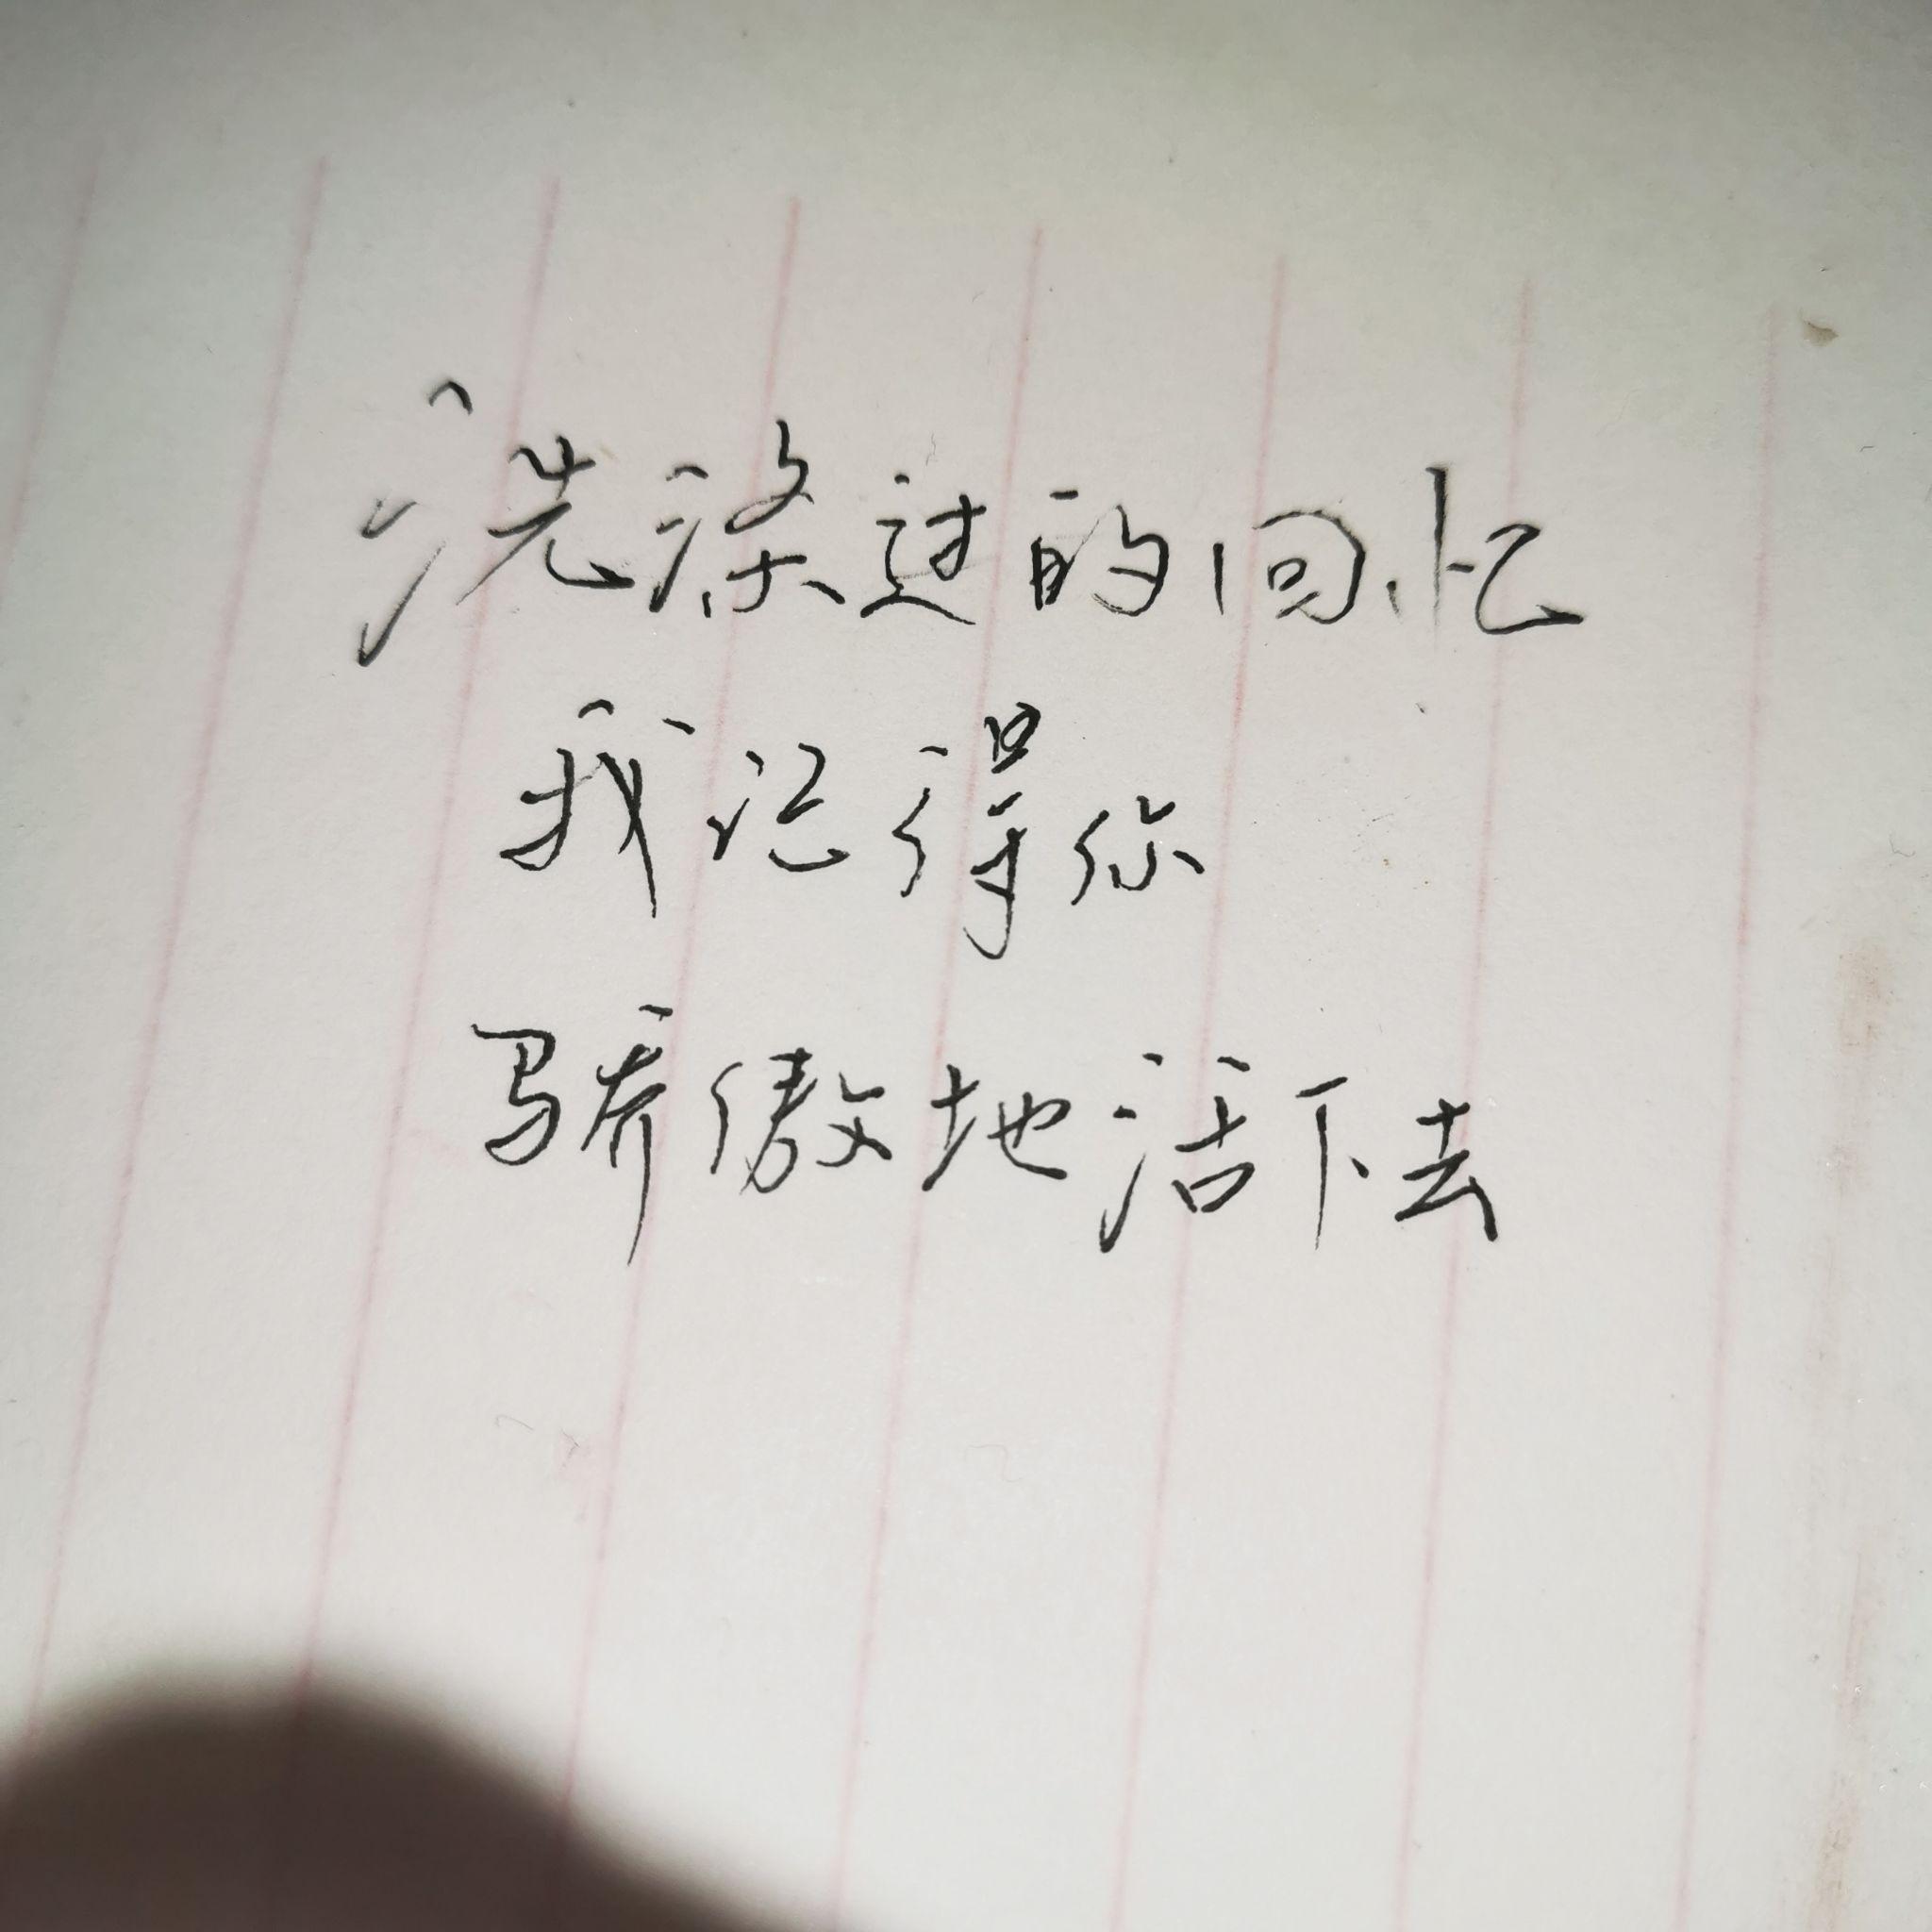 洗涤过的回忆
我记得你
骄傲地活下去